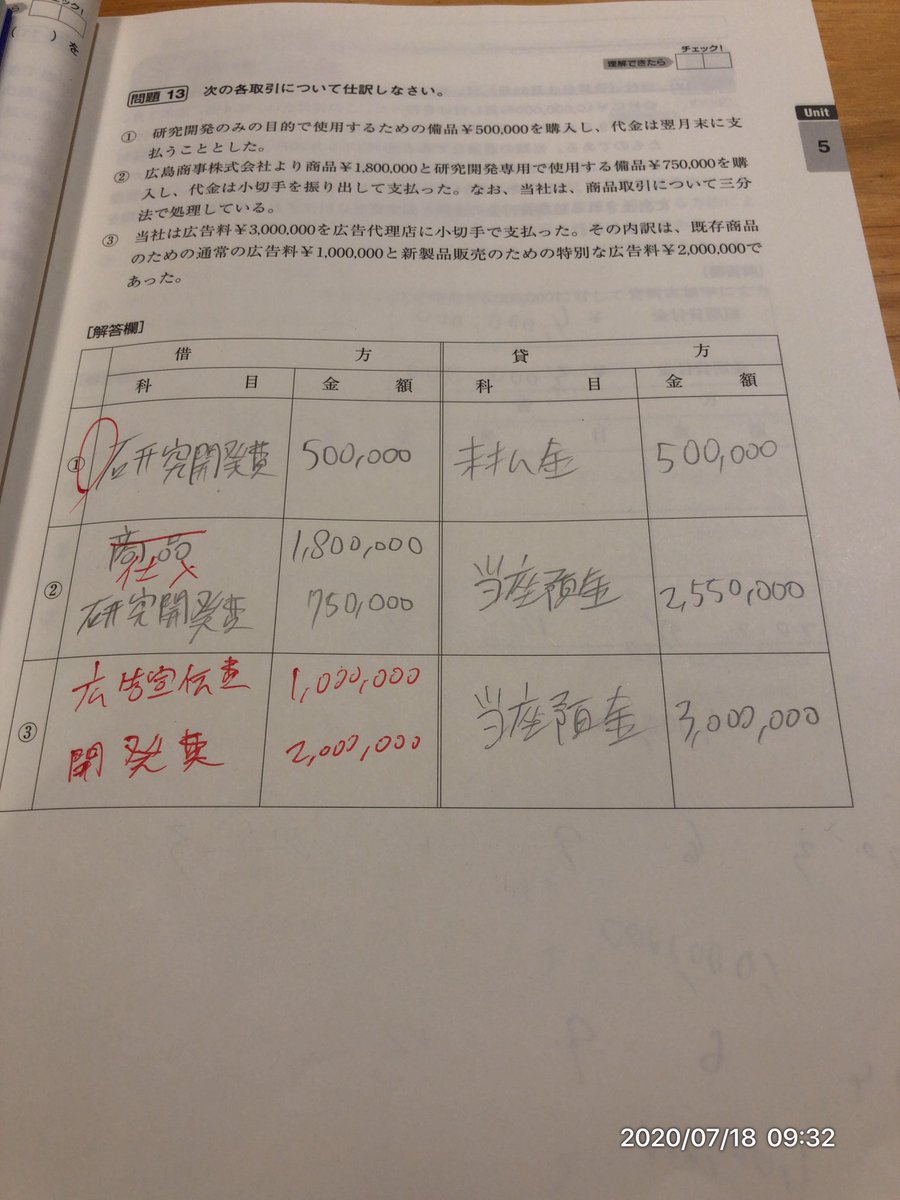 ック！
（　）を
チェック！
理解できたら
Unit
5
問題 13 次の各取引について仕訳しなさい。
① 研究開発のみの目的で使用するための備品￥500,000を購入し、代金は翌月末に支
払うこととした。
② 広島商事株式会社より商品￥1,800,000と研究開発専用で使用する備品￥750,000を購
入し、代金は小切手を振り出して支払った。なお、当社は、商品取引について三分
法で処理している。
③ 当社は広告料￥3,000,000を広告代理店に小切手で支払った。その内訳は、既存商品
のための通常の広告料￥1,000,000と新製品販売のための特別な広告料￥2,000,000で
あった。
［解答欄］
借 方 貸 方
科 目 金 額 科 目 金 額
① 研究開発費 500,000 未払金 500,000
② 商品 1,800,000 当座預金 2,550,000
仕入
研究開発費 750,000
③ 広告宣伝費 1,000,000 当座預金 3,000,000
開発費 2,000,000
2020/07/18 09:32